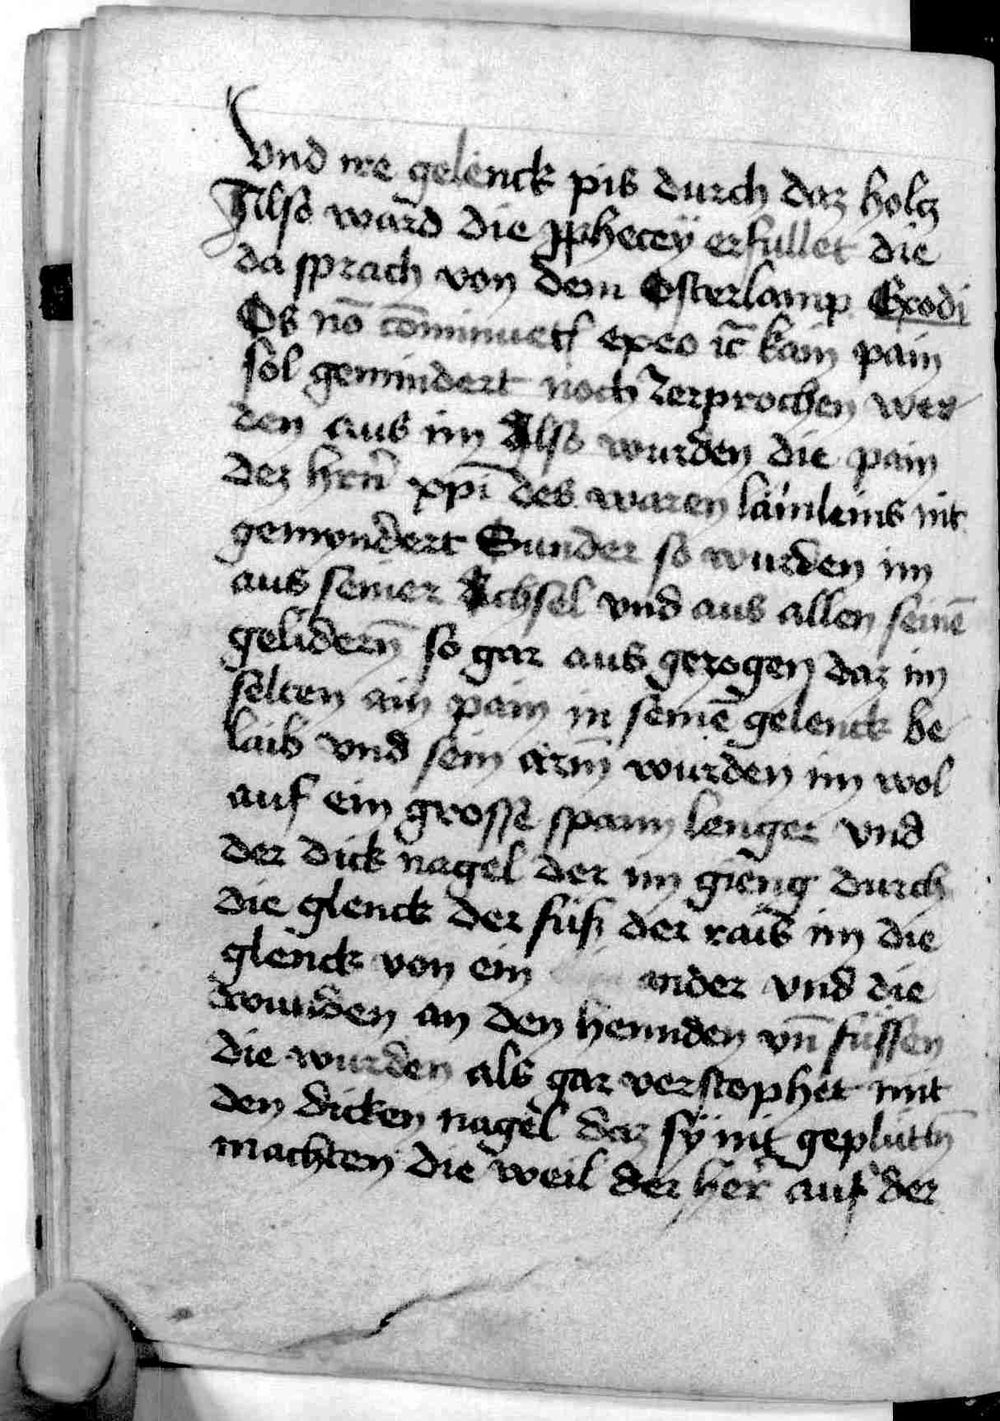 Vnd ire gelenck pis durch daz holcz
Also ward die ꝓphecey erfullet die
da sprach von dem Osterlamp Exodi
Os nō cōminuetʳ ex eo ic̄ kain pain
sol gemindert noch zerprochen wer
den aus im Also wurden die pain
dez hrn̄ xp̄i des waren lämleins nit
gemyndert Sunder so wurden im
aus seiner Achsel vnd aus allen seinē
gelidern̄ so gar aus gezogen daz im
selten ain pain in seinē gelenck be
laib vnd sein arm̄ wurden im wol
auf ein grosse spann lenger vnd
der dick nagel der im gieng durch
die glenck der füsß der raib im die
glenck von ein ander vnd die
wunden an den hennden vn̄ füssen
die wurden als gar verstophet mit
den dicken nagel daz sÿ nit geplüttn̄
machten die weil der her auf der